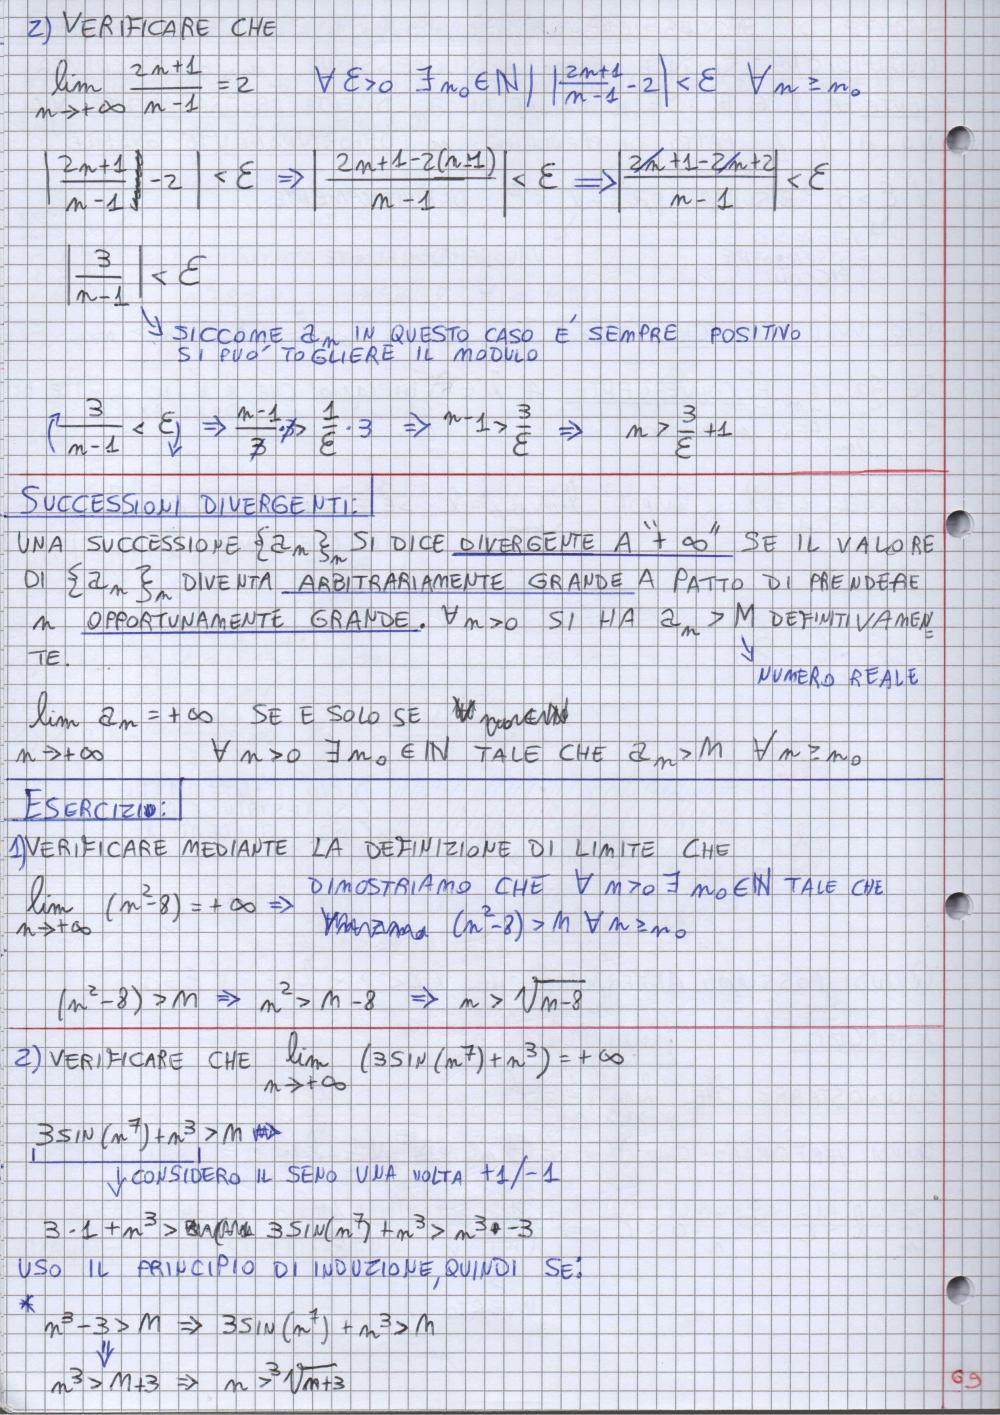 2) VERIFICARE CHE
lim n→+∞ (2n+1)/(n-1) = 2   ∀ ε>0 ∃ n₀ ∈ ℕ | |(2n+1)/(n-1) - 2| < ε ∀ n ≥ n₀
|(2n+1)/(n-1) - 2| < ε ⇒ |(2n+1-2(n-1))/(n-1)| < ε ⇒ |(2n+1-2n+2)/(n-1)| < ε
|3/(n-1)| < ε
SICCOME aₙ IN QUESTO CASO É SEMPRE POSITIVO
SI PUO' TOGLIERE IL MODULO
3/(n-1) < ε ⇒ (n-1)/3 · 3 > 1/ε · 3 ⇒ n-1 > 3/ε ⇒ n > 3/ε + 1
SUCCESSIONI DIVERGENTI:
UNA SUCCESSIONE {aₙ}ₙ SI DICE DIVERGENTE A "+∞" SE IL VALORE
DI {aₙ}ₙ DIVENTA ARBITRARIAMENTE GRANDE A PATTO DI PRENDERE
n OPPORTUNAMENTE GRANDE. ∀ M>0 SI HA aₙ > M DEFINITIVAMEN=
TE.
NUMERO REALE
lim n→+∞ aₙ = +∞ SE E SOLO SE
∀ M>0 ∃ n₀ ∈ ℕ TALE CHE aₙ > M ∀ n ≥ n₀
ESERCIZIO:
1) VERIFICARE MEDIANTE LA DEFINIZIONE DI LIMITE CHE
lim n→+∞ (n²-8) = +∞ ⇒ DIMOSTRIAMO CHE ∀ M>0 ∃ n₀ ∈ ℕ TALE CHE
(n²-8) > M ∀ n ≥ n₀
(n²-8) > M ⇒ n² > M-8 ⇒ n > √(M-8)
2) VERIFICARE CHE lim n→+∞ (3SIN(n⁷)+n³) = +∞
3SIN(n⁷)+n³ > M ⇒
CONSIDERO IL SENO UNA VOLTA +1/-1
3·1+n³ > 3SIN(n⁷)+n³ > n³ -3
USO IL PRINCIPIO DI INDUZIONE, QUINDI SE:
* n³-3 > M ⇒ 3SIN(n⁷)+n³ > M
⇓
n³ > M+3 ⇒ n > ³√(M+3)
69